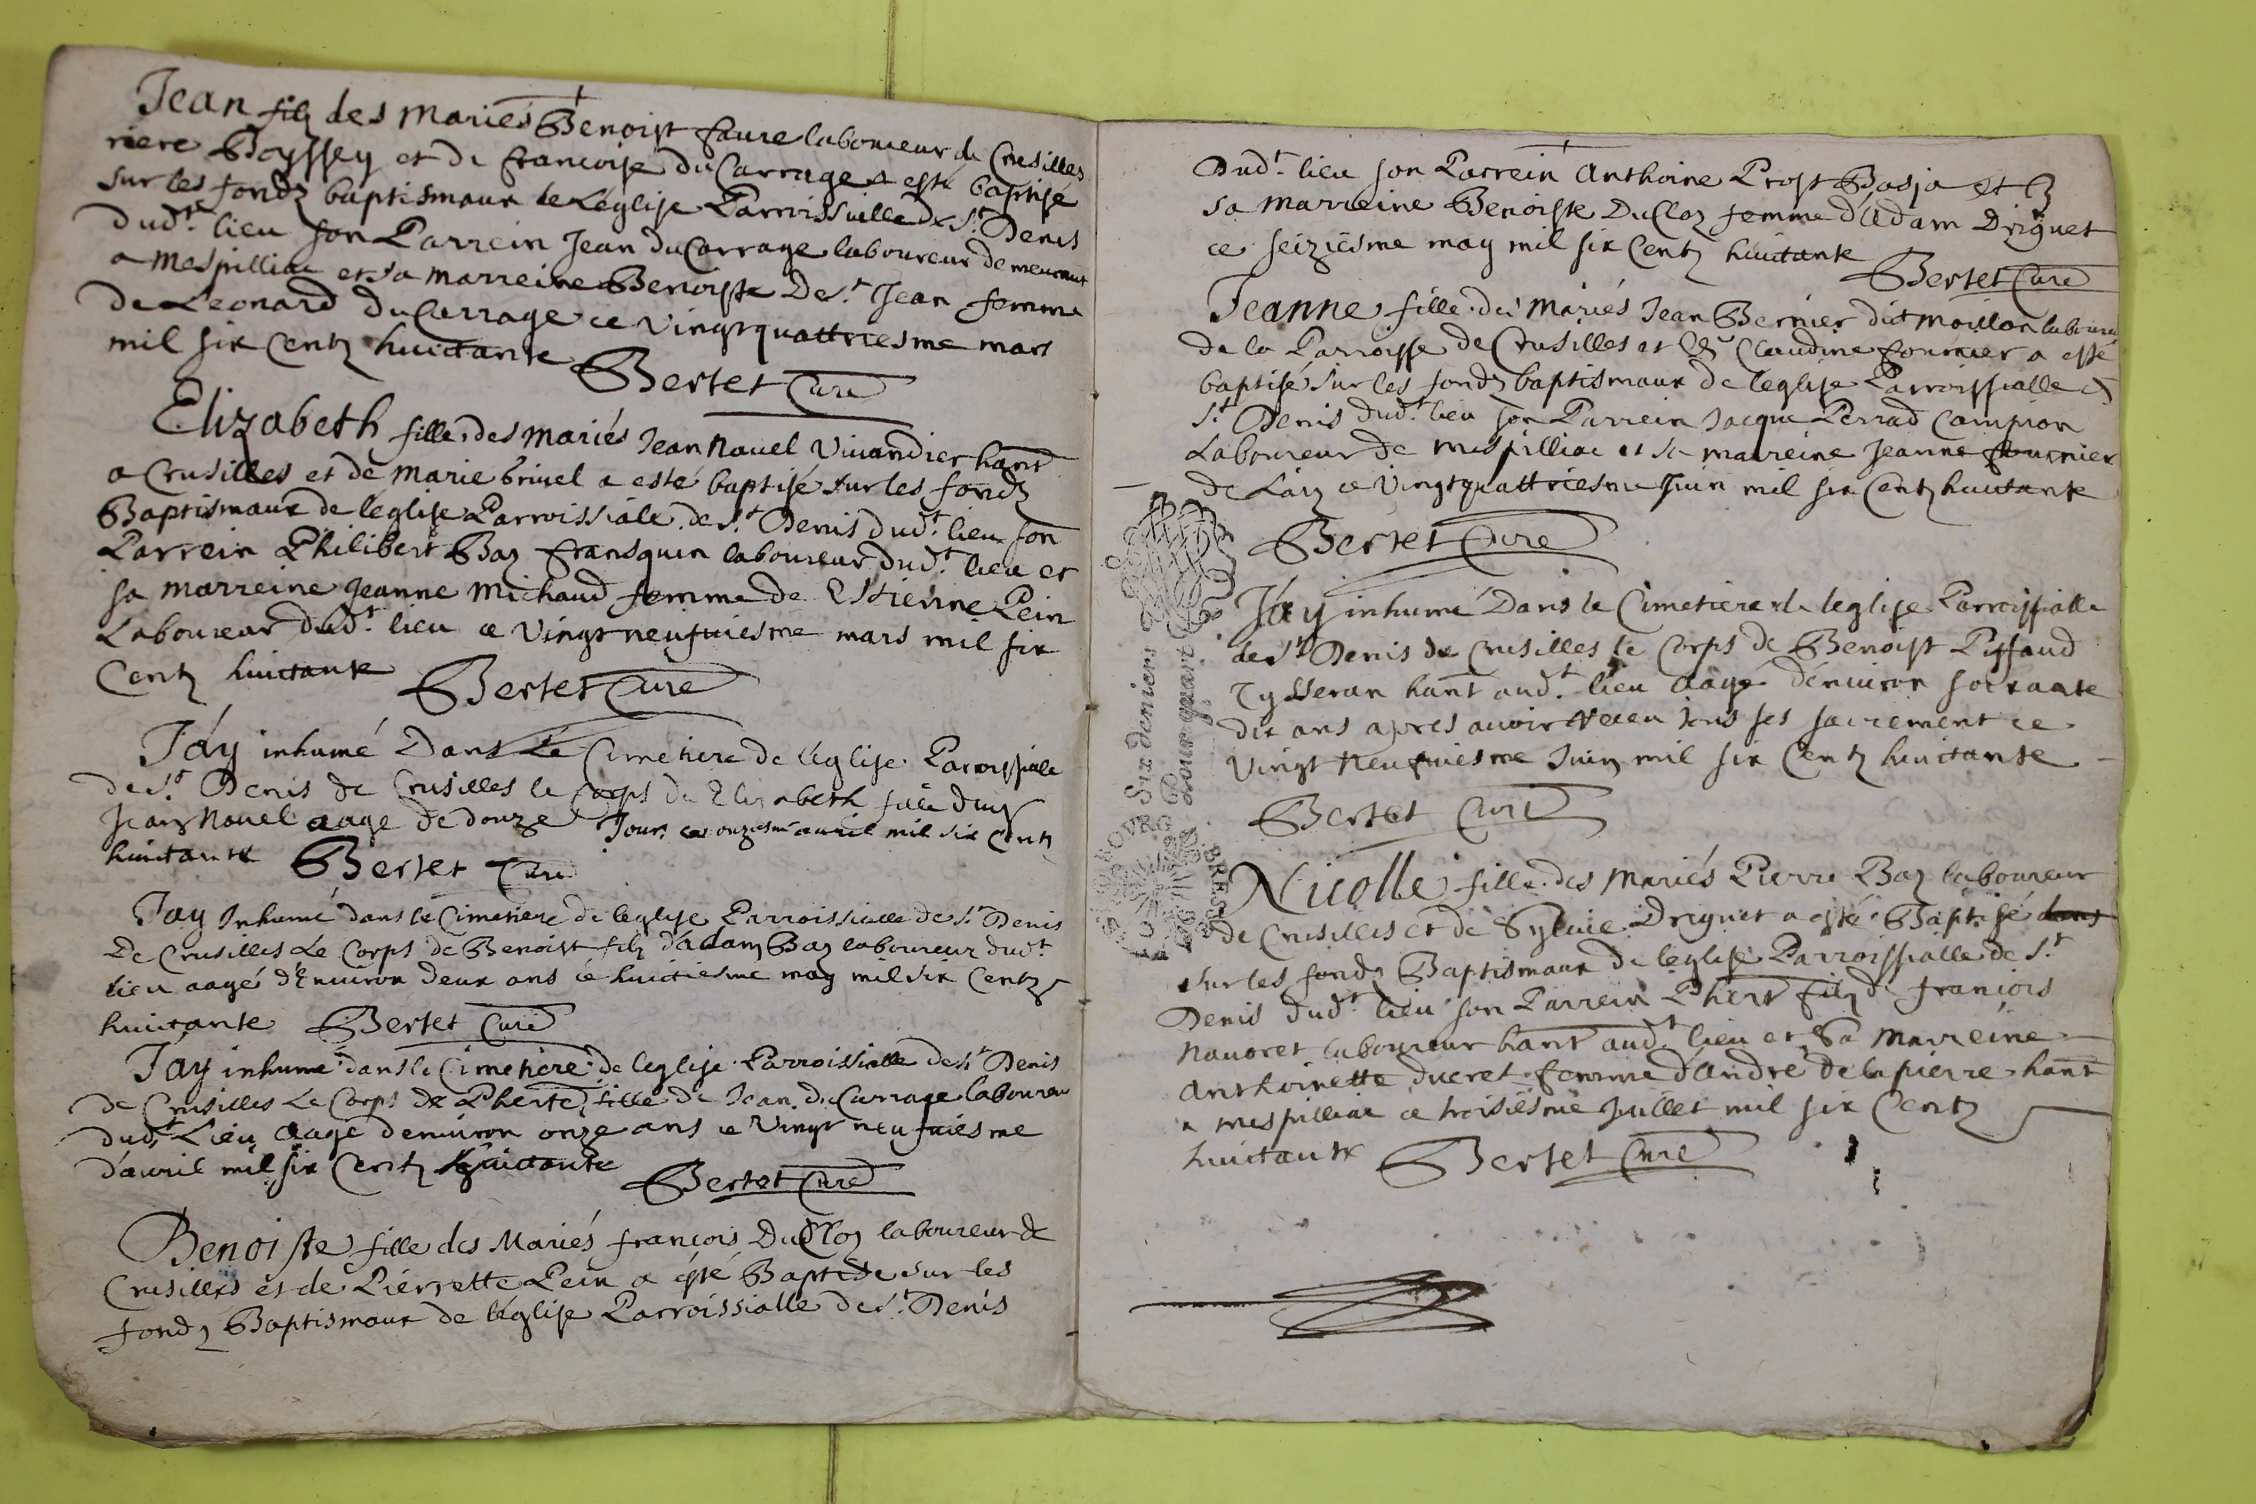 Jean filz des mariés Benoist faure laboureur de Crusilles
riere Boyssey et de francoise du Carrage a esté baptisé
sur les fondz baptismaux de L'eglise Parroissialle de St. Denis
dudt. lieu son Parrein Jean du Carrage laboureur demeurant
a Mespilliac et sa marreine Benoiste De st. Jean femme
de Leonard du Carrage ce vingt quattriesme mars
mil six Centz huictante Bertet Curé
Elizabeth fille des mariés Jean Navel Vivandier hant
a Crusilles et de Marie brivel a esté baptisé sur les fondz
Baptismaux de leglise Parroissiale de St. Denis dudt. lieu son
Parrein Philibert Baz fransquin laboureur dudt. lieu et
sa marreine Jeanne Michaud femme de Estienne Pein
Laboureur dudt. lieu ce vingt neufviesme mars mil six
Centz huictante Bertet Curé
J'ay inhumé Dans Le Cimetiere de l'eglise Parroissiale
de St. Denis de Crusilles le Corps de Elizabeth fille dud
Jean Navel aage de douze Jour ce onziesme avril mil six Centz
huictante Bertet Curé
J'ay Inhumé dans le Cimetiere de leglise Parroissialle de St. Denis
De Crusilles Le Corps de Benoist filz d'adam Baz laboureur dudt.
lieu aagé d'Environ deux ans ce huictiesme may mil six Centz
huictante Bertet Curé
J'ay inhumé dans le Cimetiere de leglise Parroissialle de St. Denis
de Crusilles Le Corps de Pherte fille de Jean du Carrage laboureur
dudt. Lieu aagé denviron onze ans ce Vingt neufviesme
d'avril mil six Centz huictante Bertet Curé
Benoiste fille des Mariés françois Du Cloz laboureur de
Crusilles et de Pierrette Pein a esté Baptisée sur les
fondz Baptismaux de l'église Parroissialle de St. Denis
Dudt. lieu son Parrein Anthoine Prost Basja et
sa marreine Benoiste Du Cloz femme d'Adam Driguet
ce seiziesme may mil six Centz huictante
Bertet Curé
Jeanne fille des Mariés Jean Bernier dict moillon laboureur
de la Parroisse de Crusilles et de Claudine fournier a esté
baptisé sur les fondz baptismaux de l'eglise Parroissialle de
St. Denis dudt. lieu son Parrein Jacque Perrad Campion
Laboureur de mespilliac et sa marreine Jeanne fournier
de Laiz ce Vingt quattriesme Juin mil six Centz huictante
Bertet Curé
J'ay inhumé Dans le Cimetiere de leglise Parroissialle
de St. Denis de Crusilles le Corps de Benoist Piffaud
Tysseran hant audt. lieu aagé d'environ soixante
dix ans apres avoir Receu tous ses sacrement ce
vingt Neufviesme Juin mil six Centz huictante
Bertet Curé
Nicolle fille des Mariés Pierre Baz laboureur
de Crusilles et de Sylvie Driguet a esté Baptisé dans
sur les fondz Baptismaux de l'eglise Parroissialle de St.
Denis dudt. lieu son Parrein Phert filz d françois
Navoret laboureur hant audt. lieu et Sa Marreine
Anthoinette ducret femme d'André de la pierre hant
a mespilliac ce troisiesme Juillet mil six Centz
huictante Bertet Curé
Six deniers
Pour quart
BOURG BRESSE